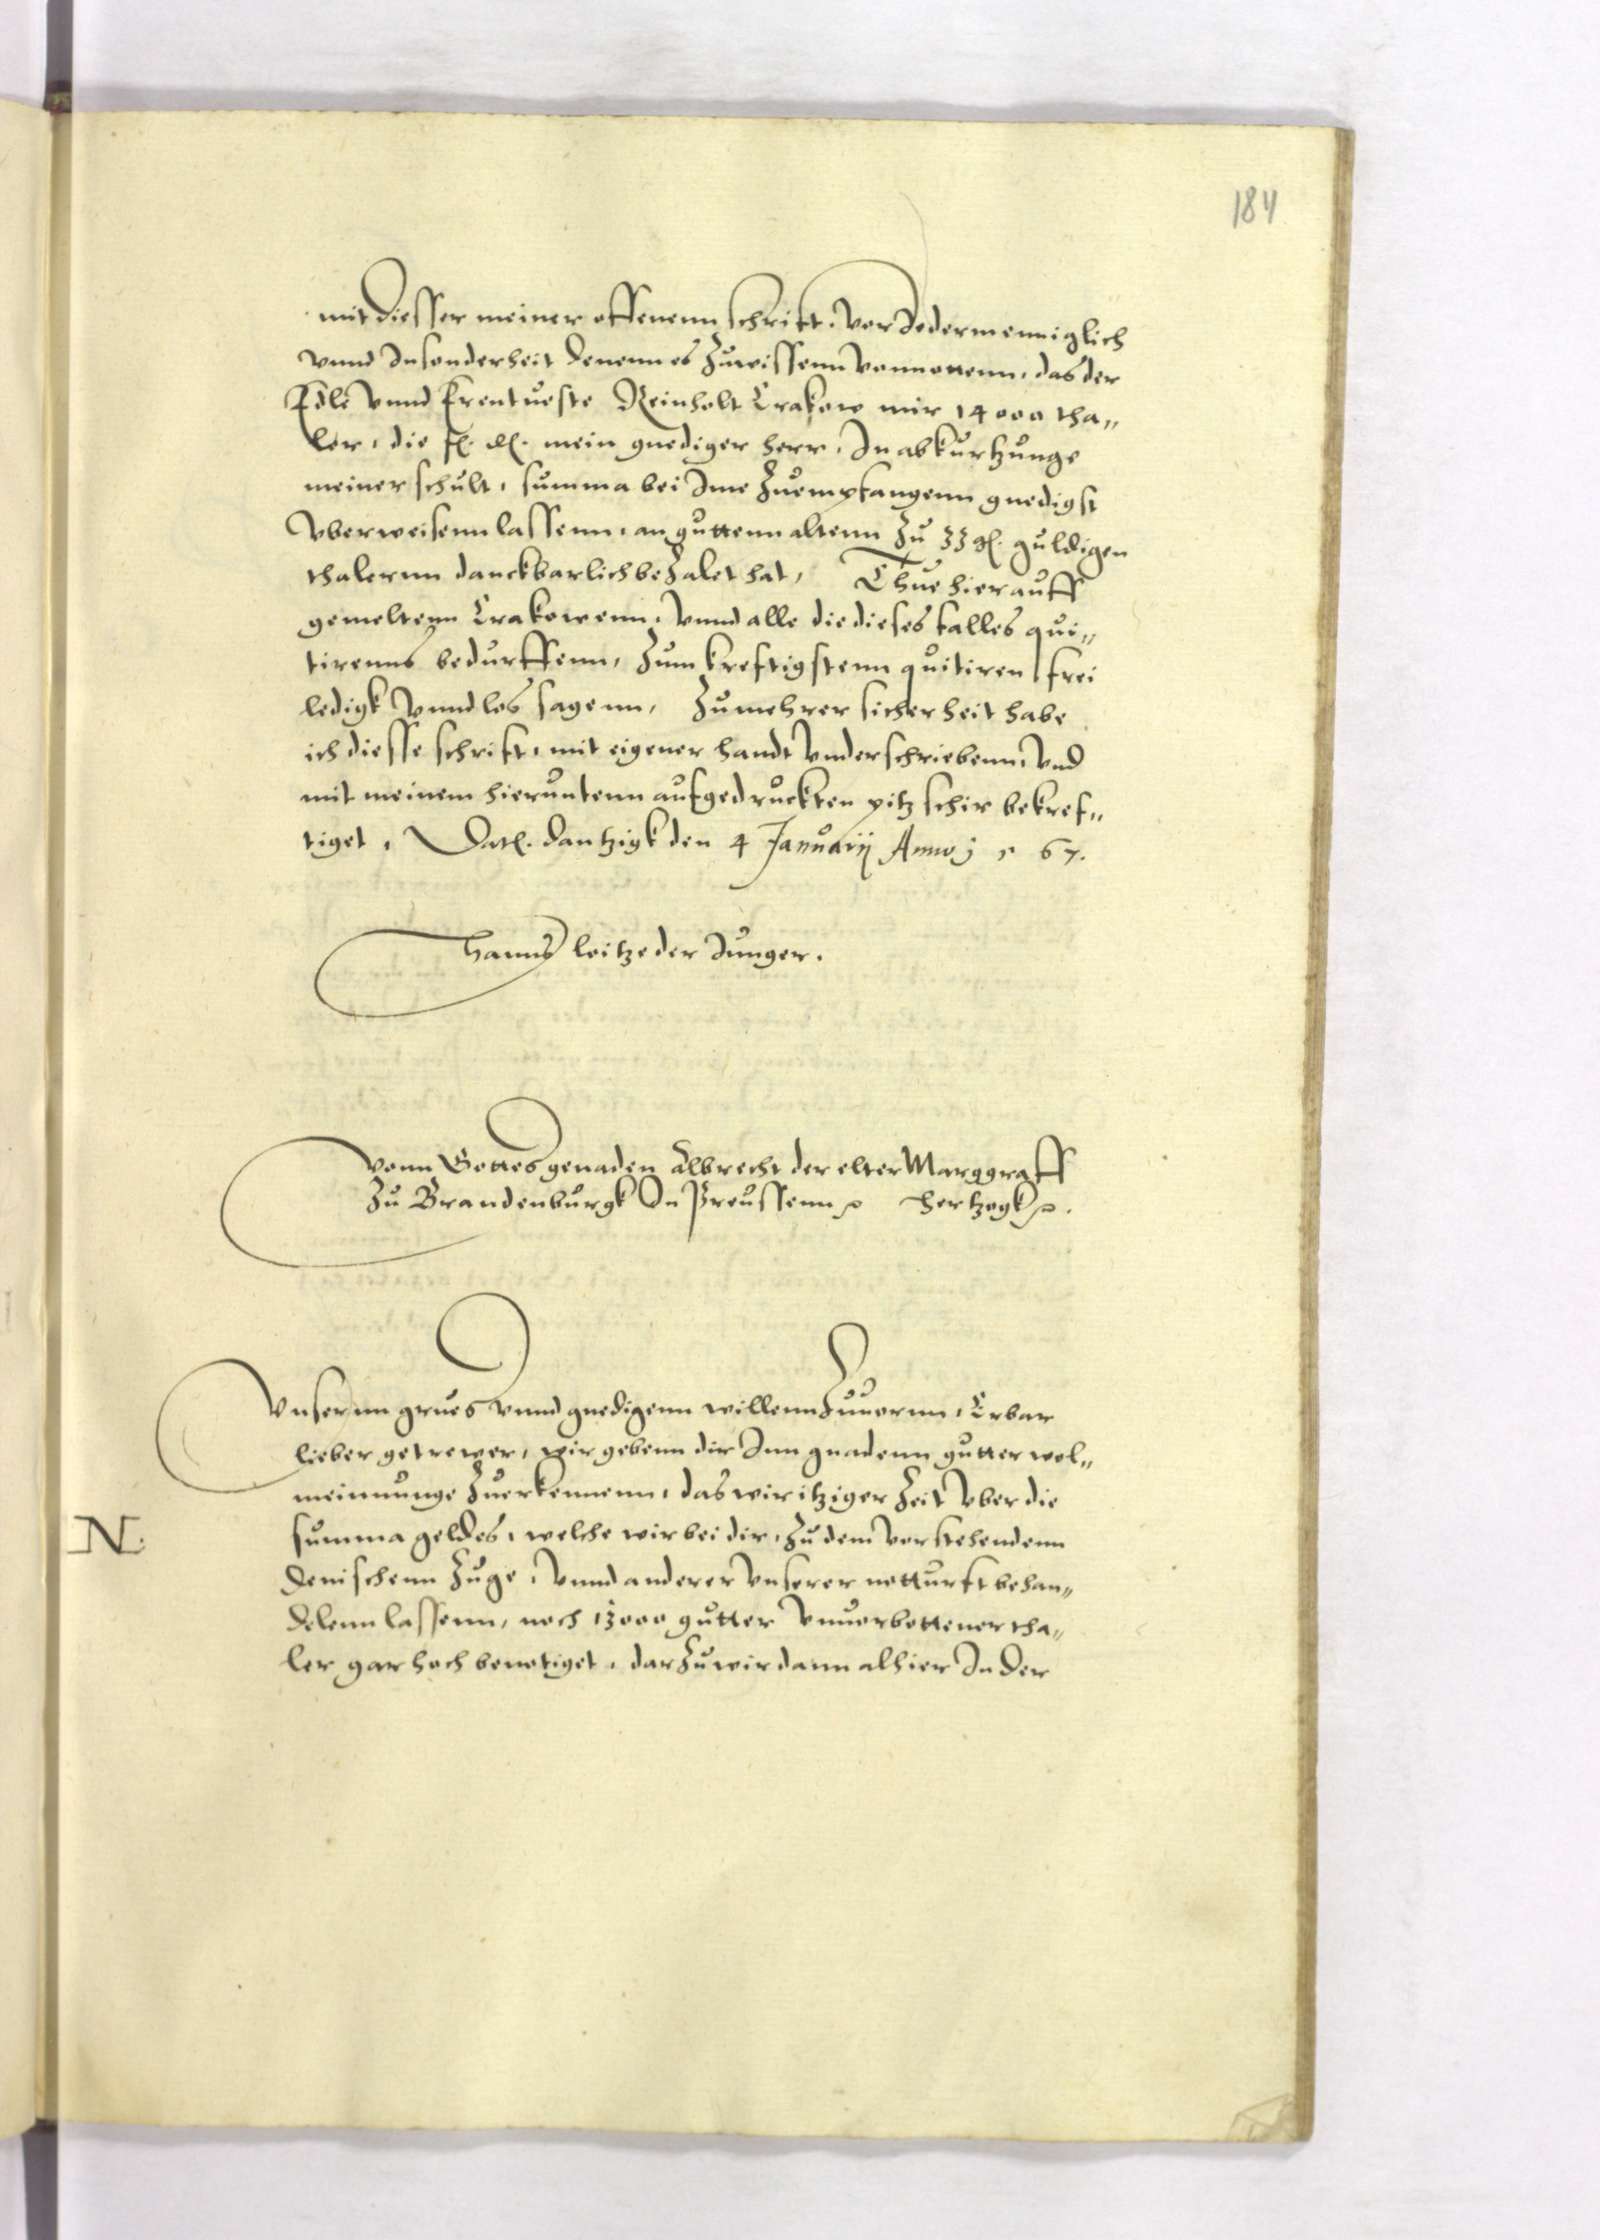 184
mit diesser meiner offenenn schrifft, vor Jdermenniglich
vnnd Jnsonderheit denenn es Zuwissenn vonnotenn, das der
Edle vnnd Erentueste Reinholt Crakow mir 14000 tha„
ler, die f. d. mein gnediger herr, Jn abkurtzunge
meiner schult, summa bei Jme Zuempfangenn gnedigst
vberweisenn lassenn, an guttenn altenn Zu 33 g. guldigen
thalernn danckbarlich beZalet hat, Thue hierauff
gemeltenn Crakowenn, vnnd alle die dieses falles qui„
tirenns bedurffenn, Zum kreftigstenn quitiren frei
ledigk vnnd los sagenn, Zu mehrer sicherheit habe
ich diesse schrift, mit eigener handt vnderschriebenn, vnd
mit meinem hieruntenn aufgedruckten pitzschir bekref„
tiget, Dat. dantzigk den 4 Januarij Anno 67.
Hanns loitze der Junger.
Vonn Gottes genaden Albrecht der elter Marggraff
Zu Brandenburgk Jn Preussenn Hertzogk
Vnsernn grues vnnd gnedigenn willenn Zuuornn, Erbar
lieber getrewer, wir gebenn dir Jnn gnadenn gutter wol„
meinnunge Zuerkennenn, das wir itziger Zeit vber die
N. summa geldes, welche wir bei dir, Zu dem vorstehendenn
denischenn Zuge, vnnd anderer vnserer notturft behan„
delenn lassenn, noch 13000 gutter vnuorbottener tha„
ler gar hoch benotiget, dar Zu wir dann alhier Jn der